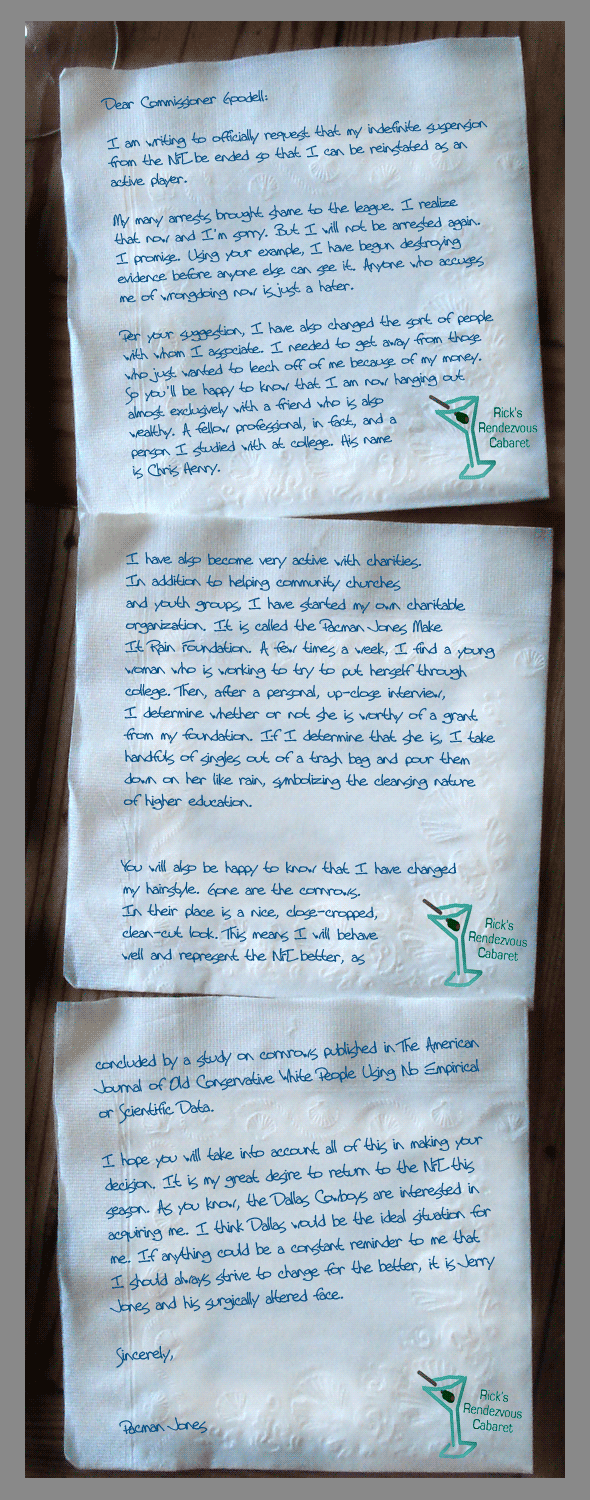 Dear Commissioner Goodell:
I am writing to officially request that my indefinite suspension
from the NFL be ended so that I can be reinstated as an
active player.
My many arrests brought shame to the league. I realize
that now and I'm sorry. But I will not be arrested again.
I promise. Using your example, I have begun destroying
evidence before anyone else can see it. Anyone who accuses
me of wrongdoing now is just a hater.
Per your suggestion, I have also changed the sort of people
with whom I associate. I needed to get away from those
who just wanted to leech off of me because of my money.
So you'll be happy to know that I am now hanging out
almost exclusively with a friend who is also
wealthy. A fellow professional, in fact, and a
person I studied with at college. His name
is Chris Henry.
Rick's
Rendezvous
Cabaret
I have also become very active with charities.
In addition to helping community churches
and youth groups, I have started my own charitable
organization. It is called the Pacman Jones Make
It Rain Foundation. A few times a week, I find a young
woman who is working to try to put herself through
college. Then, after a personal, up-close interview,
I determine whether or not she is worthy of a grant
from my foundation. If I determine that she is, I take
handfuls of singles out of a trash bag and pour them
down on her like rain, symbolizing the cleansing nature
of higher education.
You will also be happy to know that I have changed
my hairstyle. Gone are the cornrows.
In their place is a nice, close-cropped,
clean-cut look. This means I will behave
well and represent the NFL better, as
Rick's
Rendezvous
Cabaret
concluded by a study on cornrows published in The American
Journal of Old Conservative White People Using No Empirical
or Scientific Data.
I hope you will take into account all of this in making your
decision. It is my great desire to return to the NFL this
season. As you know, the Dallas Cowboys are interested in
acquiring me. I think Dallas would be the ideal situation for
me. If anything could be a constant reminder to me that
I should always strive to change for the better, it is Jerry
Jones and his surgically altered face.
Sincerely,
Pacman Jones
Rick's
Rendezvous
Cabaret